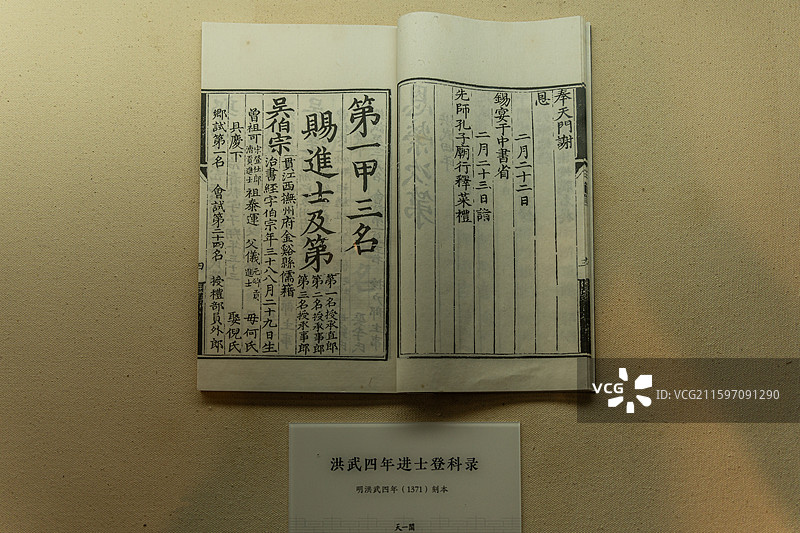 奉天門謝
恩
二月二十二日
錫宴于中書省
二月二十三日詣
先師孔子廟行釋菜禮
第一甲三名
賜進士及第
第一名授承直郎
第二名授承事郎
第三名授承事郎
吳伯宗
貫江西撫州府金谿縣儒籍
治書經字伯宗年三十八八月二十九日生
曾祖可
祖泰運
父儀
母何氏
具慶下
娶倪氏
鄉試第一名
會試第二十四名
授禮部員外郎
洪武四年进士登科录
明洪武四年（1371）刻本
天一閣
VCG
ID:VCG211597091290